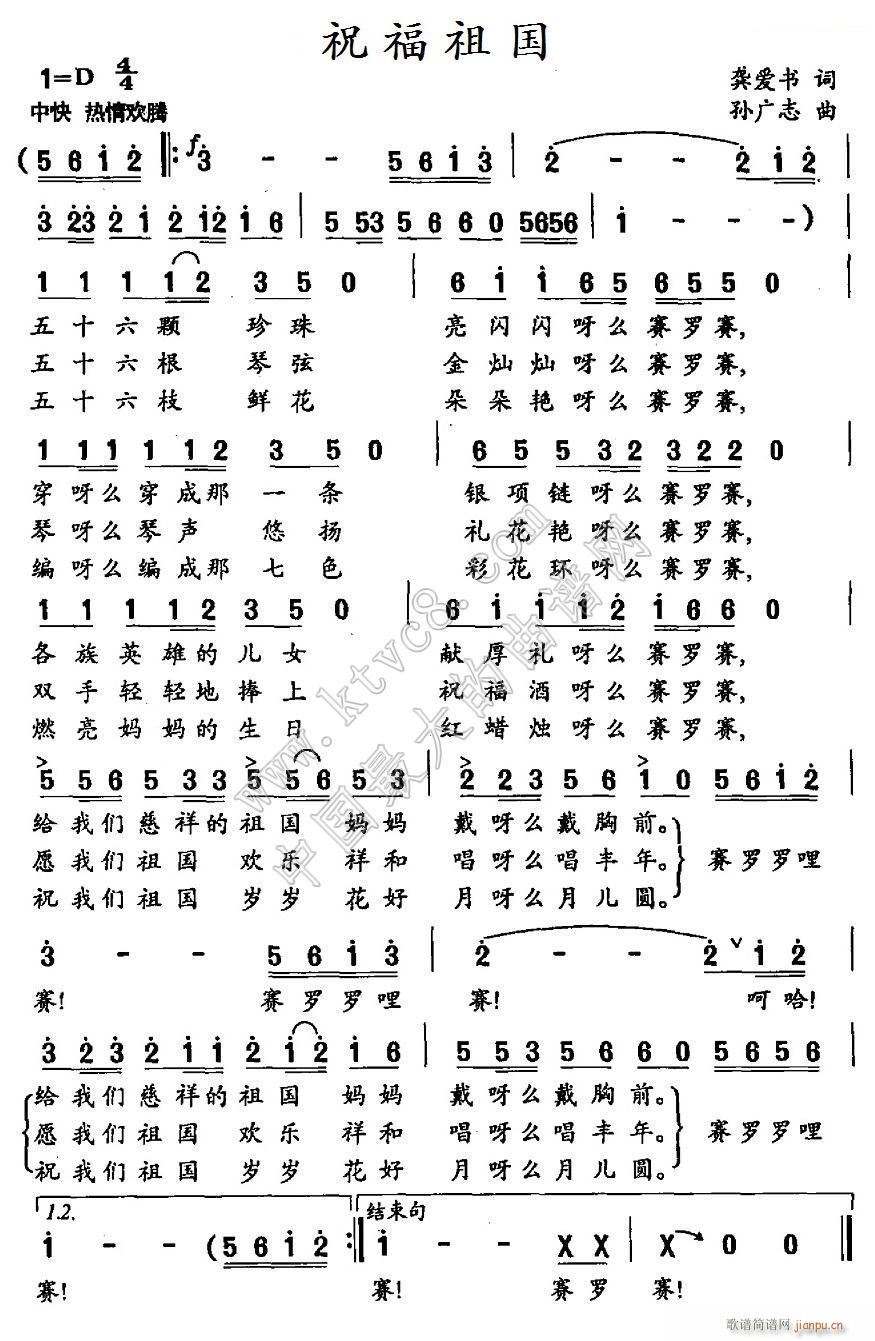 祝福祖国
1=D 4/4
龚爱书 词
中快 热情欢腾
孙广志 曲
(5 6 i 2 ‖: f 3 - - 5 6 i 3 | 2 - - 2 i 2 |
3 23 2 i 2 i2 i 6 | 5 53 5 6 6 0 5656 | i - - - ) |
1 1 1 1 2 3 5 0 | 6 i i 6 5 6 5 5 0 |
五十六颗 珍珠 亮闪闪呀么赛罗赛,
五十六根 琴弦 金灿灿呀么赛罗赛,
五十六枝 鲜花 朵朵艳呀么赛罗赛,
1 1 1 1 1 2 3 5 0 | 6 5 5 3 2 3 2 2 0 |
穿呀么穿成那一条 银项链呀么赛罗赛,
琴呀么琴声 悠扬 礼花艳呀么赛罗赛,
编呀么编成那七色 彩花环呀么赛罗赛,
1 1 1 1 2 3 5 0 | 6 i i i 2 i 6 6 0 |
各族英雄的儿女 献厚礼呀么赛罗赛,
双手轻轻地捧上 祝福酒呀么赛罗赛,
燃亮妈妈的生日 红蜡烛呀么赛罗赛,
5 5 6 5 3 3 5 5 6 5 3 | 2 2 3 5 6 1 0 5 6 i 2 |
给我们慈祥的祖国 妈妈 戴呀么戴胸前。
愿我们祖国 欢乐 祥和 唱呀么唱丰年。 赛罗罗哩
祝我们祖国 岁岁 花好 月呀么月儿圆。
3 - - 5 6 i 3 | 2 - - 2 ∨ i 2 |
赛! 赛罗罗哩 赛! 呵哈!
3 2 3 2 i i 2 i 2 i 6 | 5 5 3 5 6 6 0 5 6 5 6 |
给我们慈祥的祖国 妈妈 戴呀么戴胸前。
愿我们祖国 欢乐 祥和 唱呀么唱丰年。 赛罗罗哩
祝我们祖国 岁岁 花好 月呀么月儿圆。
1.2. 结束句
i - - (5 6 i 2 :‖ i - - X X | X 0 0 ‖
赛! 赛! 赛罗 赛!
www.ktvc8.com
中国最大的曲谱网
歌谱简谱网
jianpu.cn